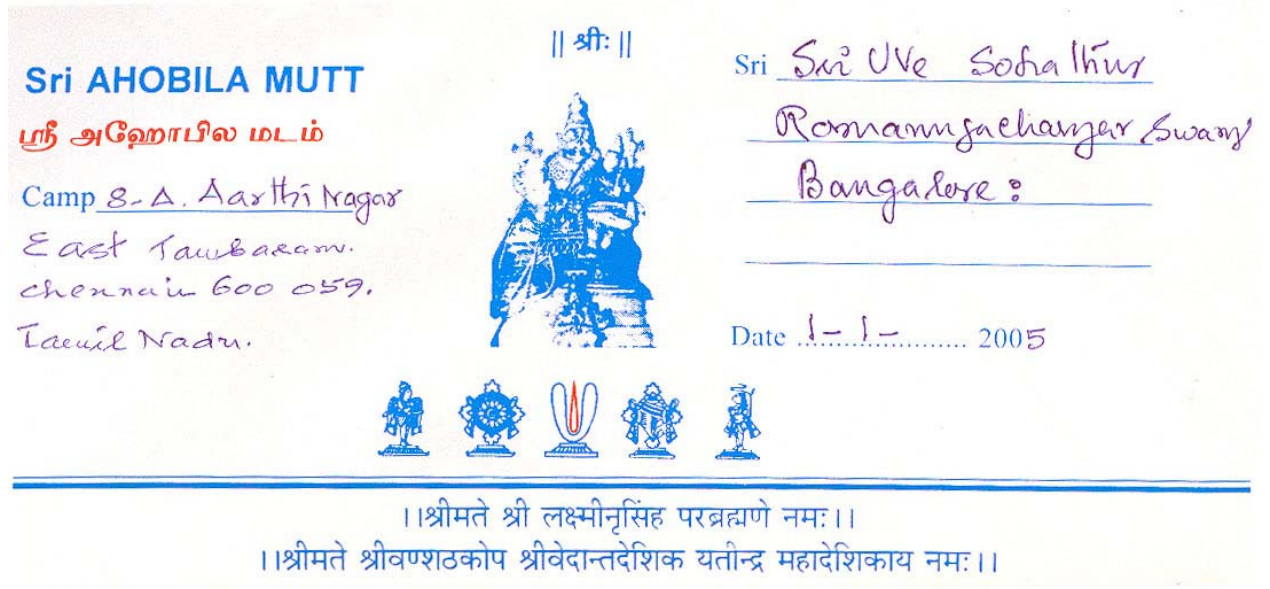 || श्रीः ||
Sri AHOBILA MUTT
ஸ்ரீ அஹோபில மடம்
Camp 8-A. Aarthi Nagar
East Tambaram.
chennai 600 059.
Tamil Nadu.
Sri Sri UVe
Swamy
Bangalore :
Date 1-1- 2005
।।श्रीमते श्री लक्ष्मीनृसिंह परब्रह्मणे नमः।।
।।श्रीमते श्रीवण्शठकोप श्रीवेदान्तदेशिक यतीन्द्र महादेशिकाय नमः।।